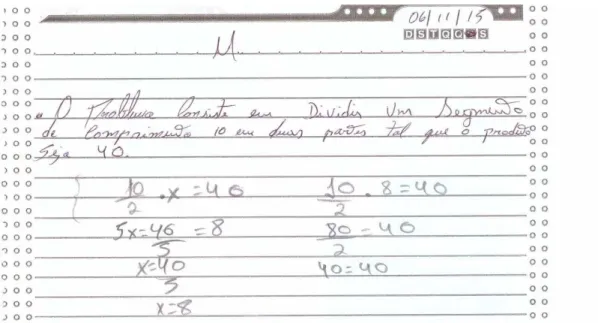 06/11/15
D S T Q Q S S
M
"O Problema Consiste em Dividir Um Segmento
de Comprimento 10 em duas partes tal que o produto
Seja 40.
10/2 . x = 40    10/2 . 8 = 40
5x = 40/5 = 8    80/2 = 40
x = 40/5    40 = 40
x = 8